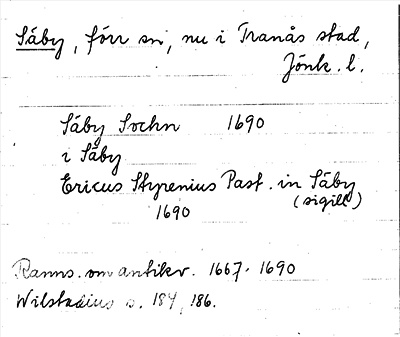 Säby, förr sn, nu i Tranås stad,
Jönk. l.
Säby Sochn 1690
i Säby
Ericus Styrenius Past. in Säby
1690 (sigill)
Ranns. om antikv. 1667-1690
Wilstadius s. 184, 186.